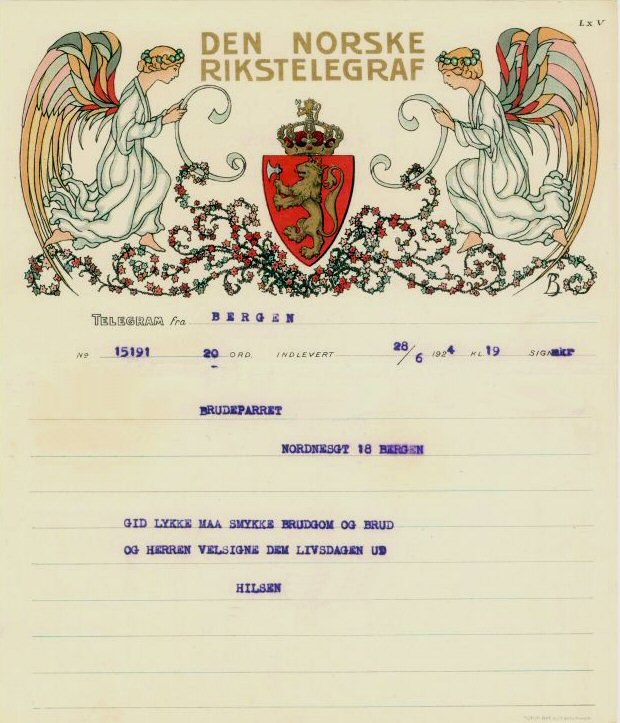 Lx V
DEN NORSKE
RIKSTELEGRAF
TELEGRAM fra BERGEN
No 15191 20 ORD. INDLEVERT 28/6 1924 KL 19 SIGN
BRUDEPARRET
NORDNESGT 18 BERGEN
GID LYKKE MAA SMYKKE BRUDGOM OG BRUD
OG HERREN VELSIGNE DEM LIVSDAGEN UD
HILSEN